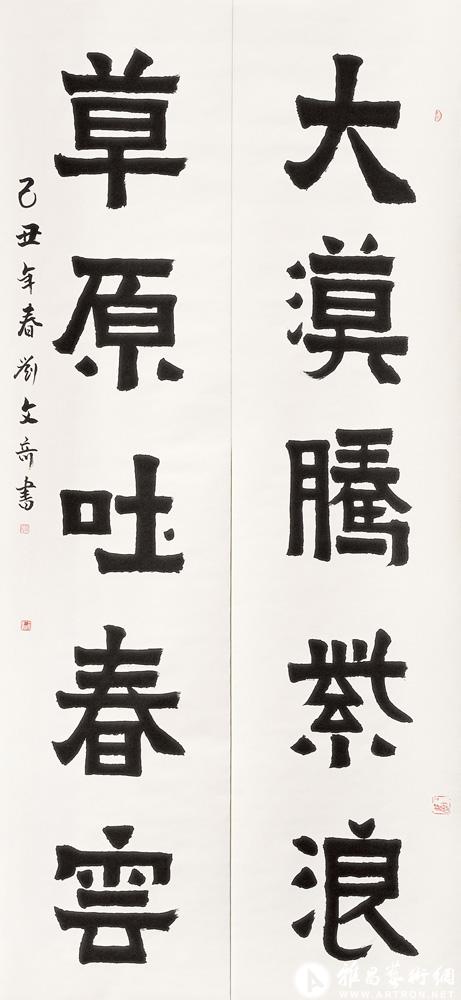 大漠騰紫浪
草原吐春雲
己丑年春劉文奇書
雅昌藝術網
WWW.ARTRON.NET